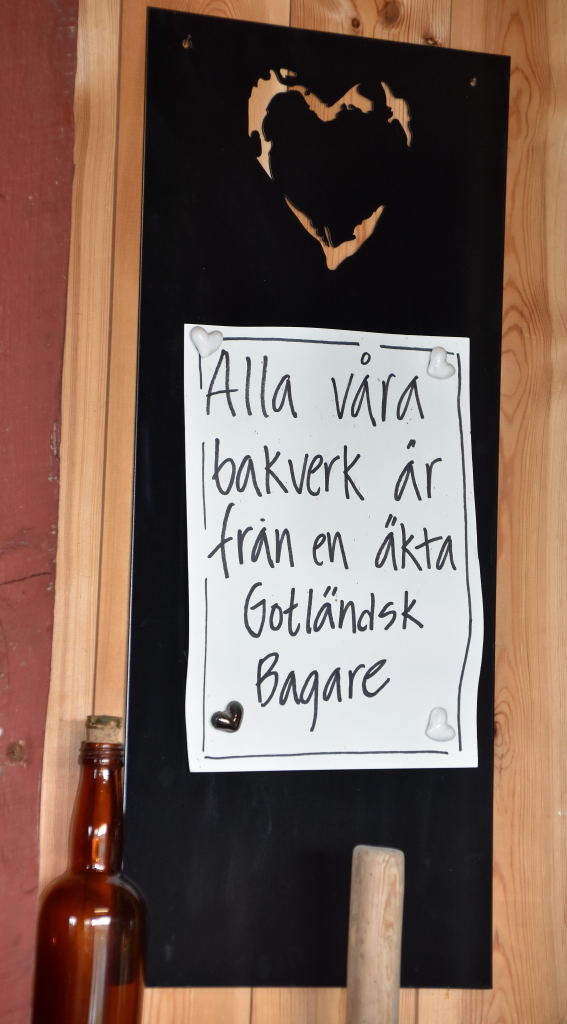 Alla våra
bakverk är
från en äkta
Gotländsk
Bagare